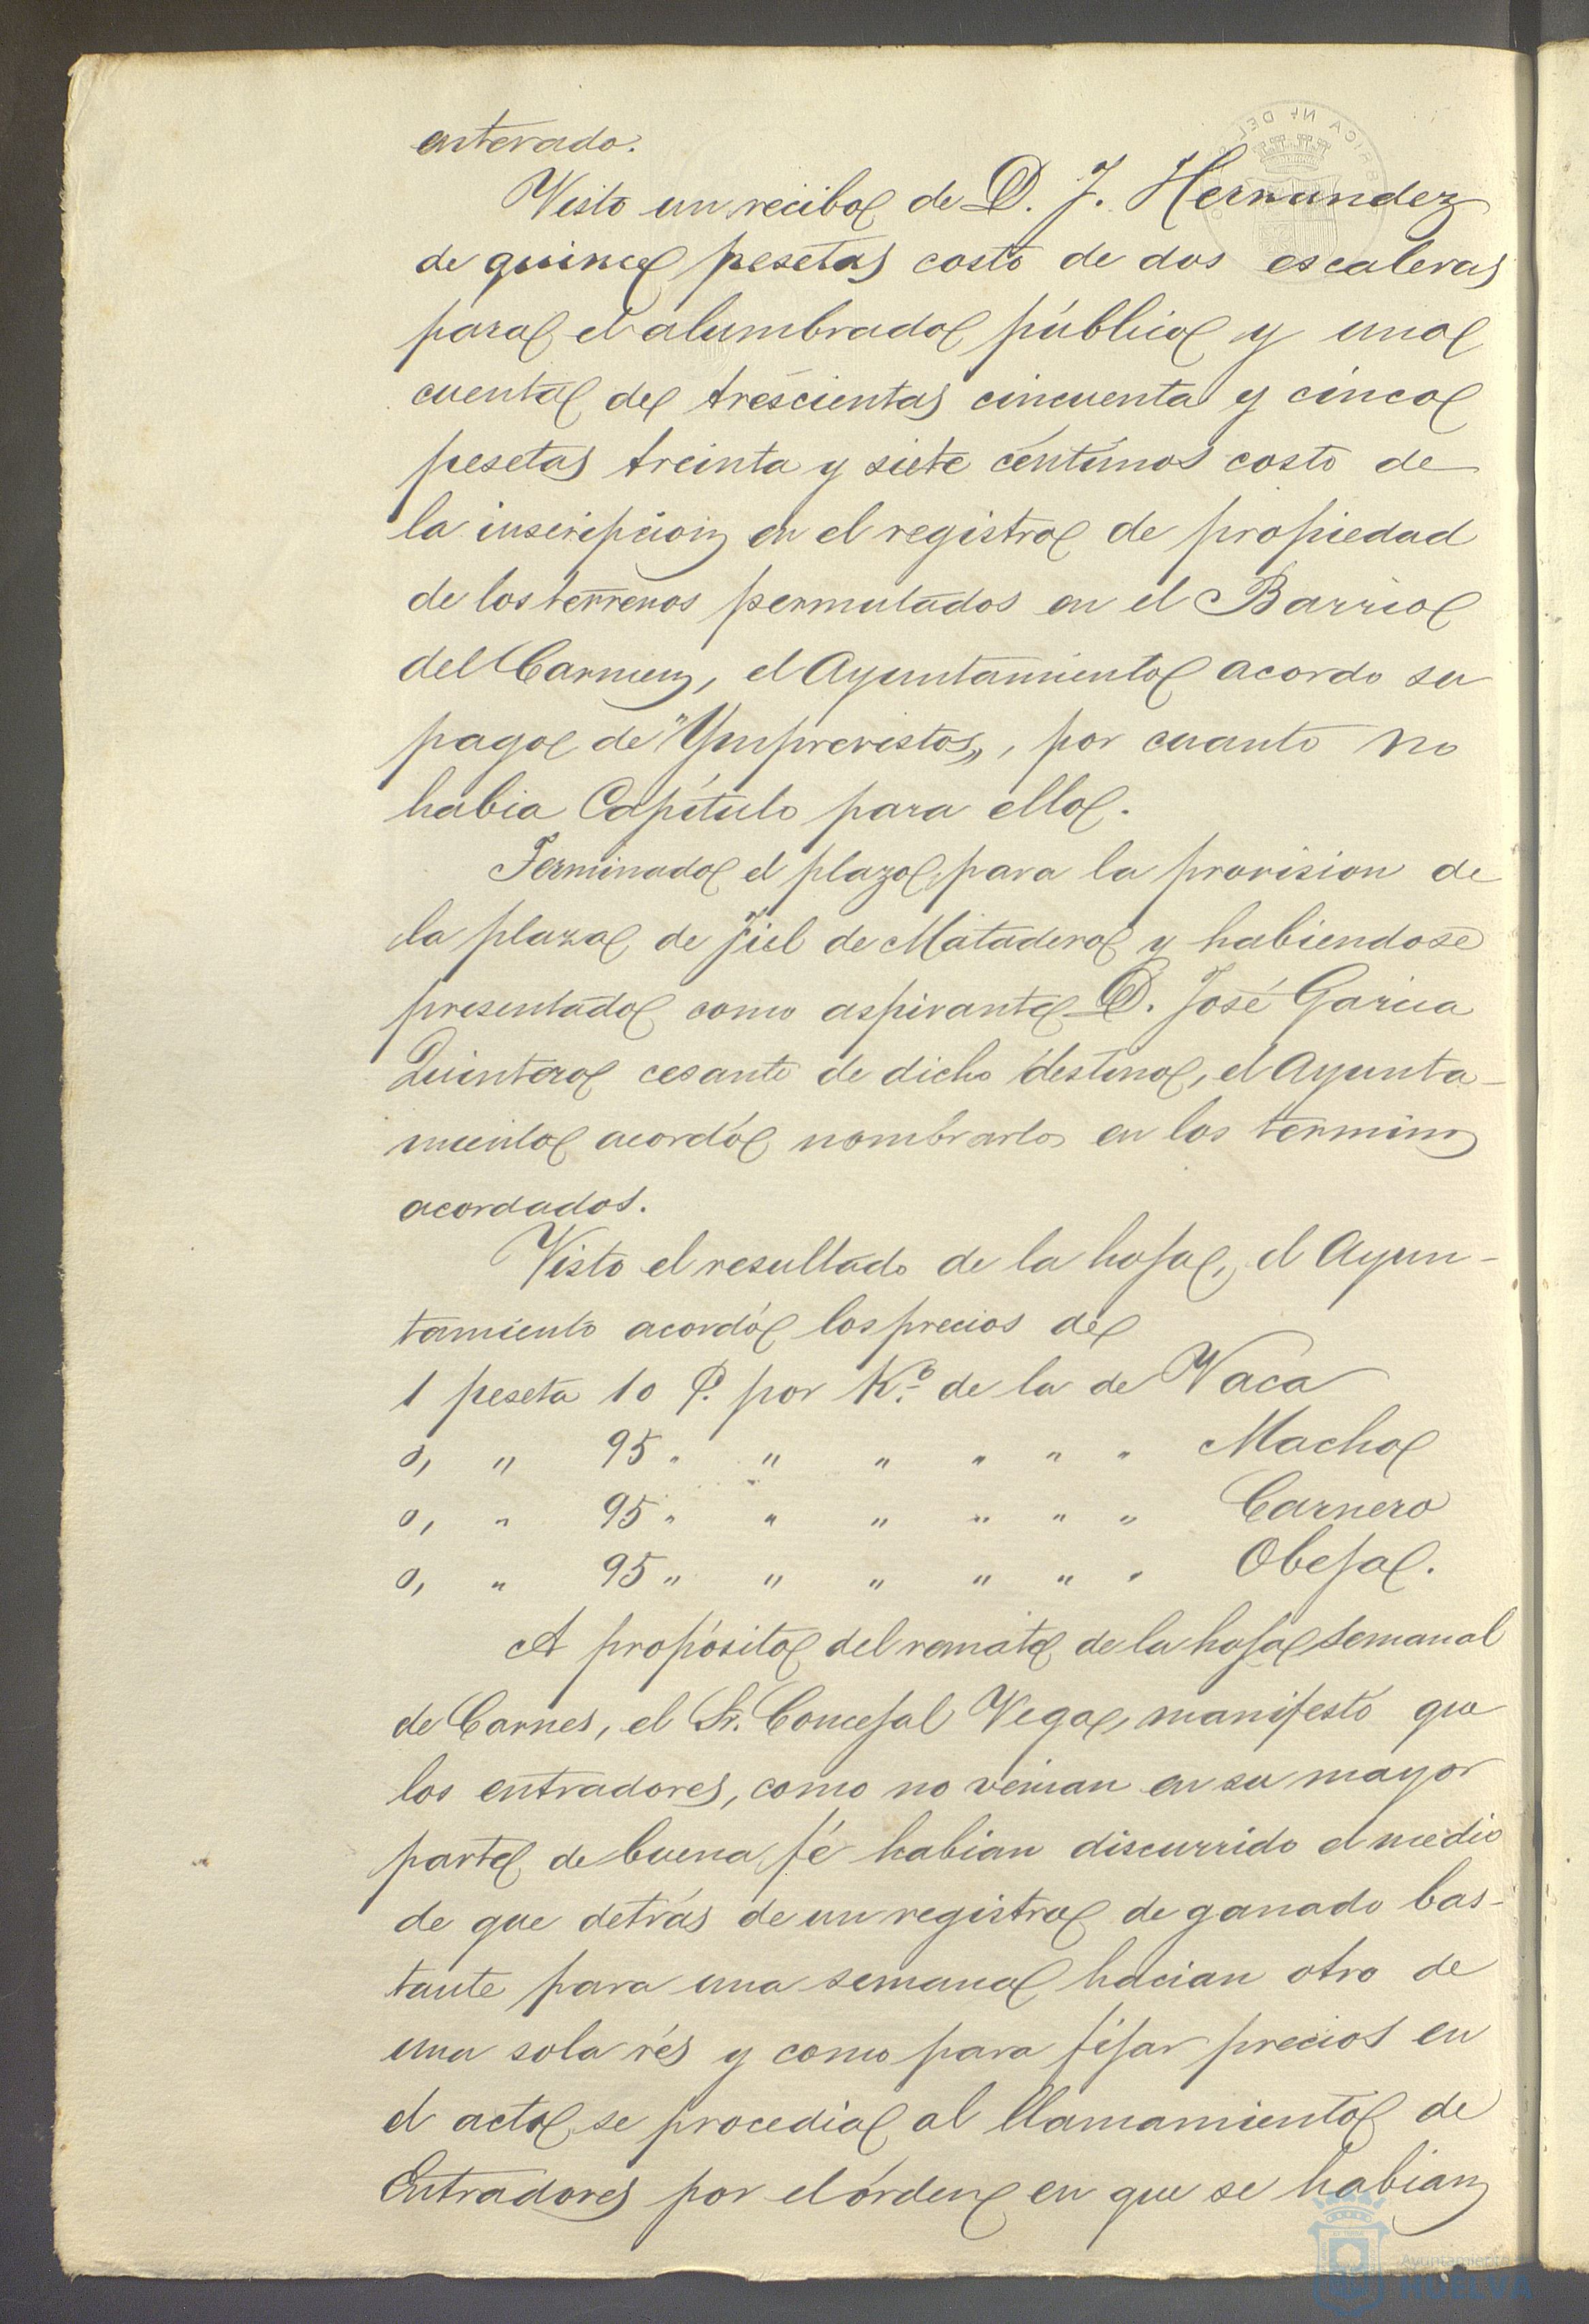 enterado.
Visto un recibo de D. J. Hernandez
de quince pesetas costo de dos escaleras
para el alumbrado público y una
cuenta de trescientas cincuenta y cinco
pesetas treinta y siete céntimos costo de
la inscripcion en el registro de propiedad
de los terrenos permutados en el Barrio
del Carmen, el Ayuntamiento acordo su
pago de "Ymprevistos", por cuanto no
habia Capítulo para ello.
Terminado el plazo para la provision de
la plaza de Fiel de Matadero y habiendose
presentado como aspirante D. José Garcia
Quintero cesante de dicho destino, el Ayunta-
miento acordó nombrarlo en los terminos
acordados.
Visto el resultado de la hoja, el Ayun-
tamiento acordó los precios de
1 peseta 10 C. por Kº de la de Vaca
0, " 95 " " " " " " Macho
0, " 95 " " " " " " Carnero
0, " 95 " " " " " " Obeja.
A propósito del remate de la hoja semanal
de Carnes, el Sr. Concejal Vega, manifestó que
los entradores, como no venian en su mayor
parte de buena fé habian discurrido el medio
de que detrás de un registro de ganado bas-
tante para una semana hacian otro de
una sola rés y como para fijar precios en
el acto se procedia al llamamiento de
Entradores por el órden en que se habian
Ayuntamiento
HUELVA